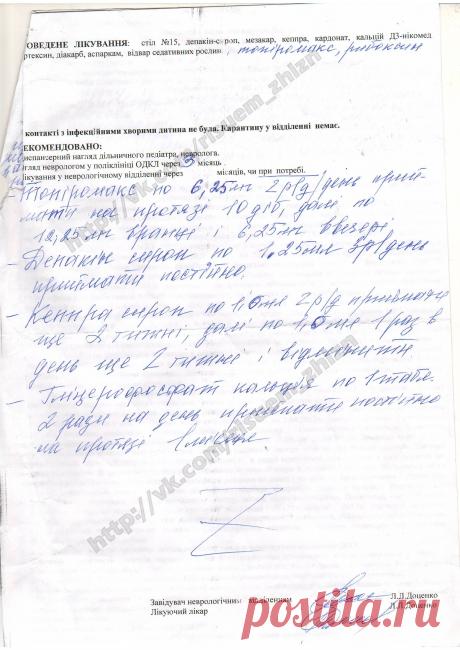 ОВЕДЕНЕ ЛІКУВАННЯ: стіл №15, депакін-сироп, мезакар, кеппра, кардонат, кальцій Д3-нікомед
ртексин, діакарб, аспаркам, відвар седативних рослин, топіромакс, рибоксин
контакті з інфекційними хворими дитина не була. Карантину у відділенні немає.
ЕКОМЕНДОВАНО:
испансерний нагляд дільничного педіатра, невролога.
гляд неврологом у поліклініці ОДКЛ через 3 місяць.
ікування у неврологічному відділенні через місяців, чи при потребі.
- Топіромакс по 6,25мг 2 р/д/день
на протязі 10 діб, далі по
12,25мг вранці і 6,25мг ввечері.
- Депакін сироп по 1,25мл 3р/день
приймати постійно.
- Кеппра сироп по 1,0мл 2 р/д приймати
ще 2 тижні, далі по 1,0мл 1 раз в
день ще 2 тижні і відмінити
- Гліцерофосфат кальція по 1 табл
2 рази на день приймати постійно
на протязі 1 місяця.
Завідувач неврологічним відділенням Л.Л.Доценко
Лікуючий лікар Л.Л.Доценко
http://vk.com/risuem_zhizn
http://vk.com/risuem_zhizn
http://vk.com/risuem_zhizn
postila.ru